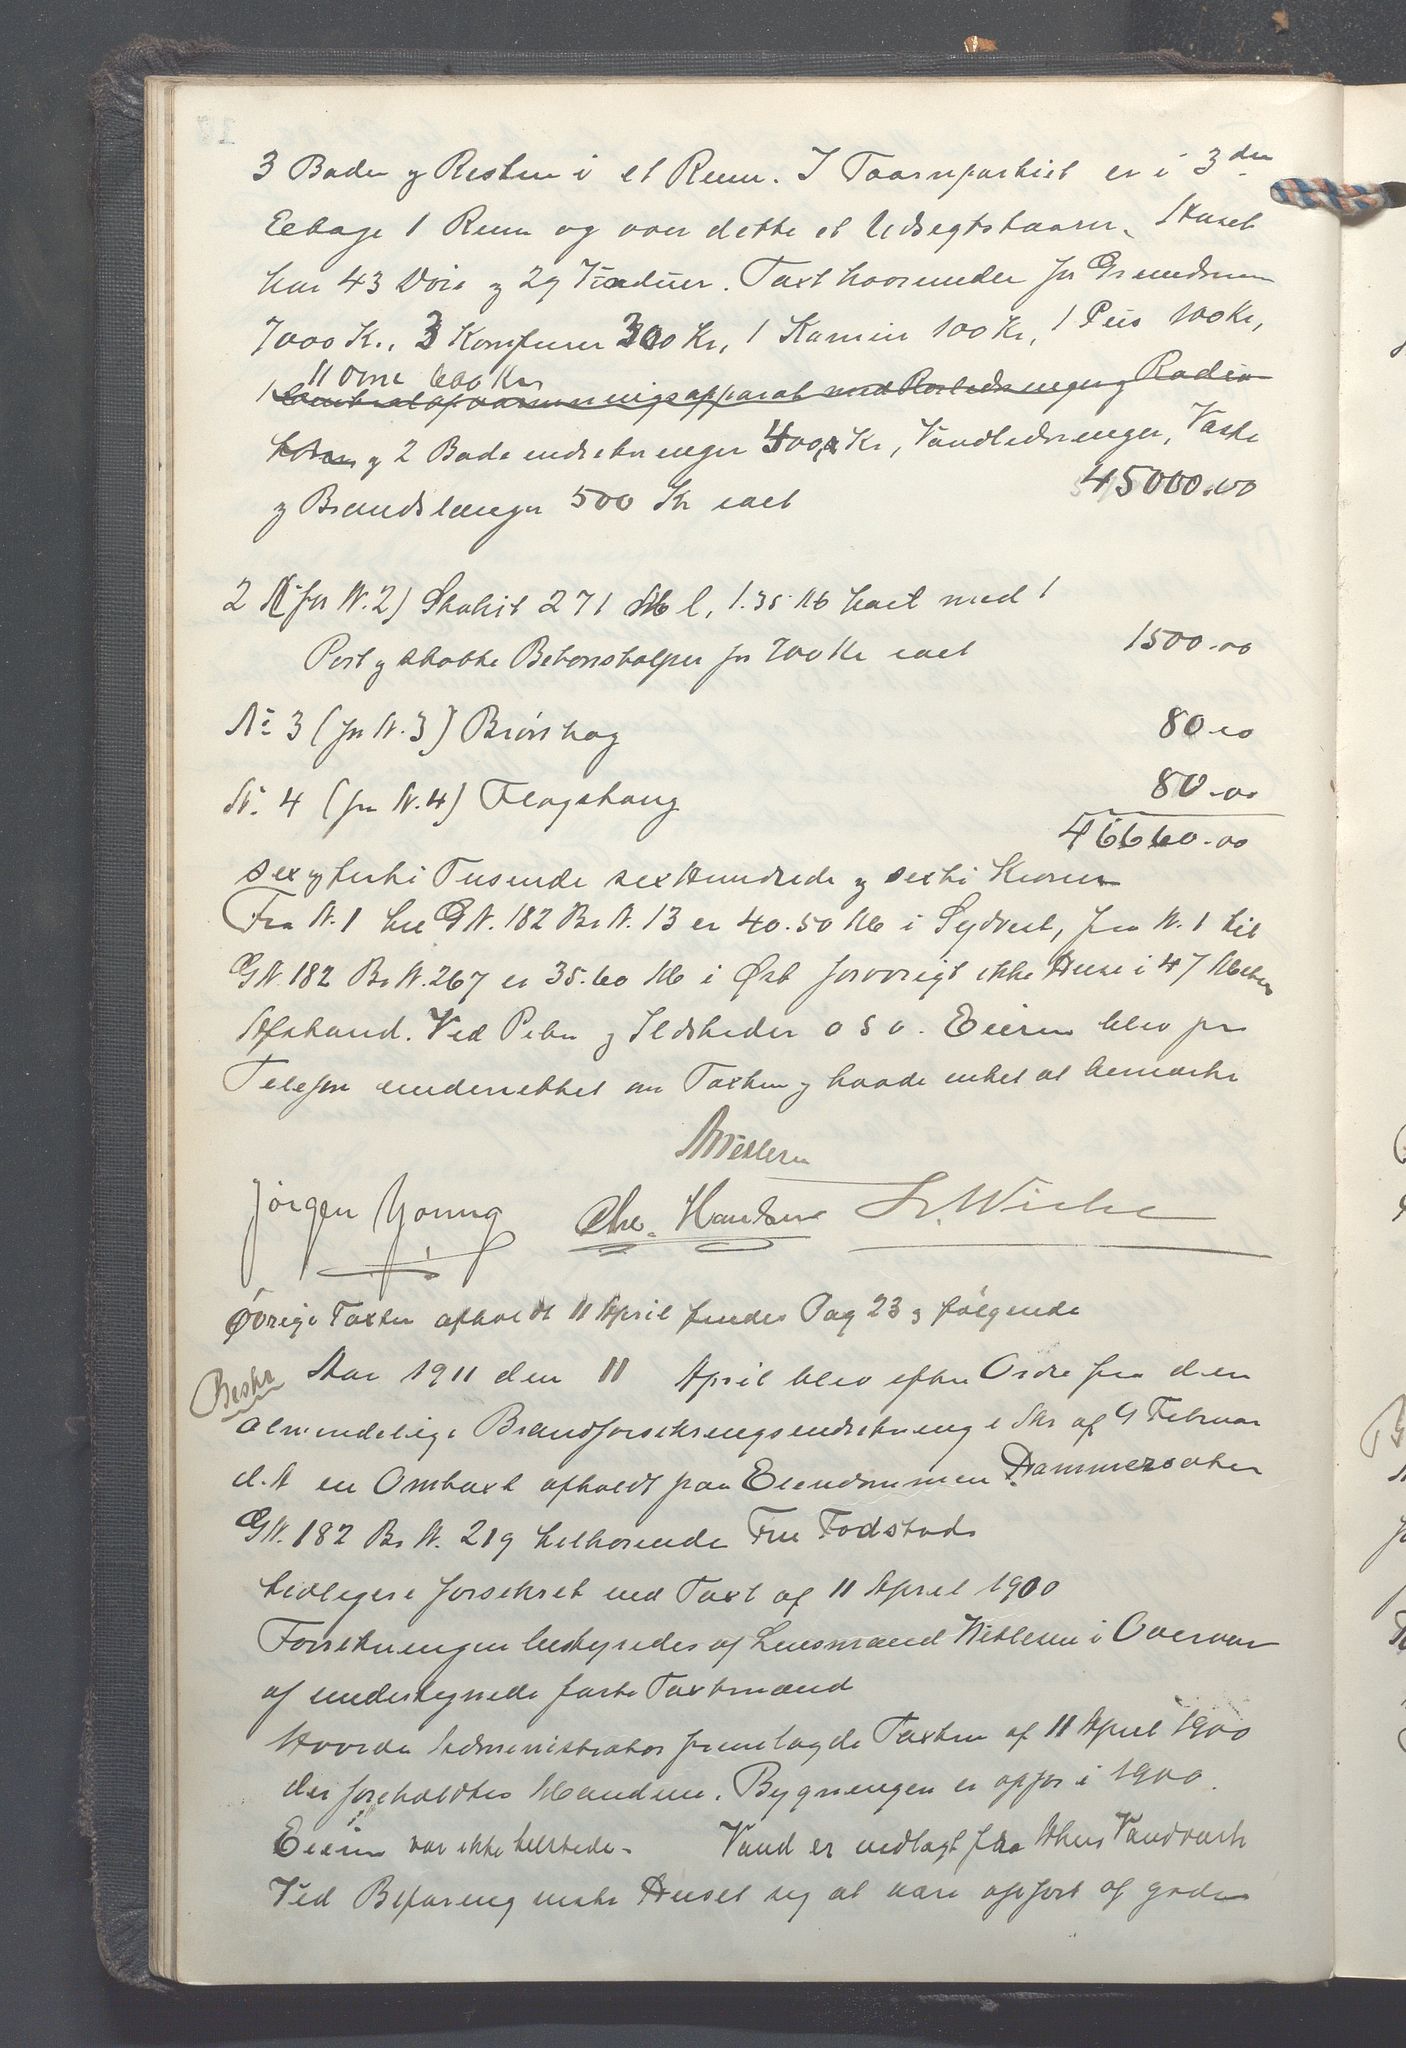 3 Boder og Resten i et Rum. I Taarnpartiet er i 3den
Eetage 1 Rum og over dette et Udsegtstaarn. Huset
har 43 Døre og 29 Vinduer. Taxt hvorunder for Grundmur
7000 Kr., 3 Komfurer 300 Kr, 1 Kamin 100 Kr, 1 Peis 100 Kr,
11 Ovne 600 Kr
1 Centralopvarmningsapparat med Rørledninger og Radia
torer og 2 Badeindretninger 400 Kr, Vandledninger, Vaske
og Brandslanger 500 Kr ialt 45000.00
2 (før N. 2) Stakit 271 M l, 1.35 M høit med 1
Port og støbte Betonstolper for 700 Kr ialt 1500.00
No 3 (før N. 3) Brønhog 80.00
No 4 (før N. 4) Flagstang 80.00
46660.00
sex og førti Tusende sex Hundrede og sexti Kroner
Fra N. 1 til GN. 182 Br N. 13 er 40.50 M i Sydvest, fra N. 1 til
GN. 182 Br N. 267 er 35.60 M i Øst forøvrigt ikke Huse i 47 Meters
Afstand. Ved Piber og Ildsteder o s v. Eieren blev pr
Telefon underrettet om Taxten og havde intet at bemærke
Jørgen Young Chr. Hansen
Øvrige Taxter afholdt 11 April findes Pag 23 og følgende
Aar 1911 den 11 April blev efter Ordre fra den
almindelige Brandforsikringsindretning i Skr af 9 Februar
d. A en Omtaxt afholdt paa Eiendommen Hammersaker
GN. 182 Br N. 219 tilhørende Fru Fodstad
tidligere forsikret ved Taxt af 11 April 1900
Forretningen bestyredes af Lensmand i Overvær
af undertegnede faste Taxtmænd
Hvorda Administrator fremlagde Taxten af 11 April 1900
der foreholdtes Mændene. Bygningen er opfør i 1900.
Eieren var ikke tilstede. Vand er indlagt fra Akers Vandværk
Ved Befaring viste Huset sig at være opført af gode